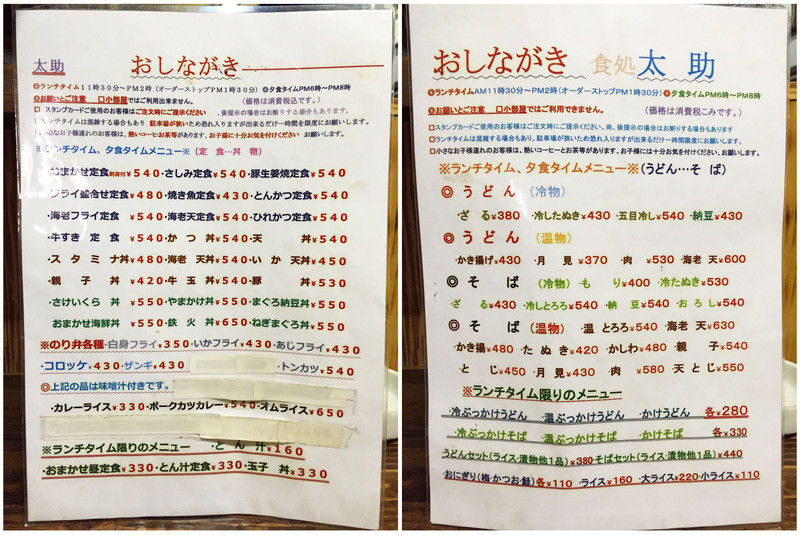 太助 おしながき
◎ランチタイム11時30分～PM2時(オーダーストップPM1時30分) ◎夕食タイムPM6時～PM8時
◎お願いとご注意 口小部屋ではご利用出来ません。 (価格は消費税込です。)
□ スタンプカードご使用のお客様はご注文時にご提示ください 、後提示の場合はお断りする場合もあります。
ランチタイムは混雑する場合もあり 駐車場が狭いため恐れ入りますが出来るだけ一時間を限度にお願いします。
小さなお子様連れのお客様は、熱いコーヒとお茶等があります、お子様に十分お気を付けください お願いします。
※ランチタイム、夕食タイムメニュー※(定食…丼物)
おまかせ定食刺身付¥540・さしみ定食¥540・豚生姜焼定食¥540
フライ盛合せ定食¥480・焼き魚定食¥430・とんかつ定食¥540
海老フライ定食 ¥540・海老天定食¥540・ひれかつ定食¥540
・牛すき 定 食 ¥540・か つ 丼¥540・天 丼¥540
・ス タ ミ ナ丼¥480・海老 天丼¥540・い か 天¥450
・親 子 丼¥420・牛 玉 丼¥540・豚 丼¥530
・さけいくら 丼¥550・やまかけ丼¥550・まぐろ納豆丼¥550
おまかせ海鮮丼 ¥550・鉄 火 丼¥650・ねぎまぐろ丼¥550
※のり弁各種・白身フライ¥350・いかフライ¥430・あじフライ¥430
・コロッケ¥430・ザンギ¥430 ・トンカツ¥540
◎上記の品は味噌汁付きです。
・カレーライス¥330・ポークカツカレー¥540・オムライス¥650
※ランチタイム限りのメニュー ・とん 汁¥160
・おまかせ昼定食¥330・とん汁定食¥330・玉子 丼¥330
おしながき 食処 太助
◎ランチタイムAM11時30分～PM2時(オーダーストップPM1時30分) ◎夕食タイムPM6時～PM8時
◎お願いとご注意 口小部屋ではご利用できません。 (価格は消費税こみです。)
□スタンプカードご使用のお客様はご注文時にご提示ください、尚、後提示の場合はお断りする場合もあります
□ランチタイムは混雑する場合もあり、駐車場が狭いため恐れ入りますが出来るだけ一時間を限度にお願いします。
□小さなお子様連れのお客様は、熱いコーヒとお茶等があります、お子様には十分お気を付けください、お願いします。
※ランチタイム、夕食タイムメニュー※(うどん…そ ば)
◎ う ど ん (冷物)
・ざ る¥380・冷したぬき¥430・五目冷し¥540・納豆¥430
◎ う ど ん (温物)
・かき揚げ¥430・月 見 ¥370・肉 ¥530・海老 天¥600
◎ そ ば (冷物)・も り¥400・冷たぬき¥530
・ざ る¥430・冷しとろろ¥540・納 豆¥540・お ろ し¥540
◎ そ ば (温物)・温 とろろ¥540・海老 天¥630
・かき揚¥480・た ぬ き ¥420・かしわ¥480・親 子¥540
・と じ¥450・月 見¥430・肉 ¥580・天 と じ¥550
※ランチタイム限りのメニュー
・冷ぶっかけうどん ・温ぶっかけうどん ・かけうどん 各¥280
・冷ぶっかけそば ・温ぶっかけそば ・かけそば 各¥330
うどんセット(ライス・漬物他1品)¥380そばセット(ライス・漬物他1品)¥440
・おにぎり(梅・かつお・鮭)各¥110 ・ライス¥160 ・大ライス¥220・小ライス¥110